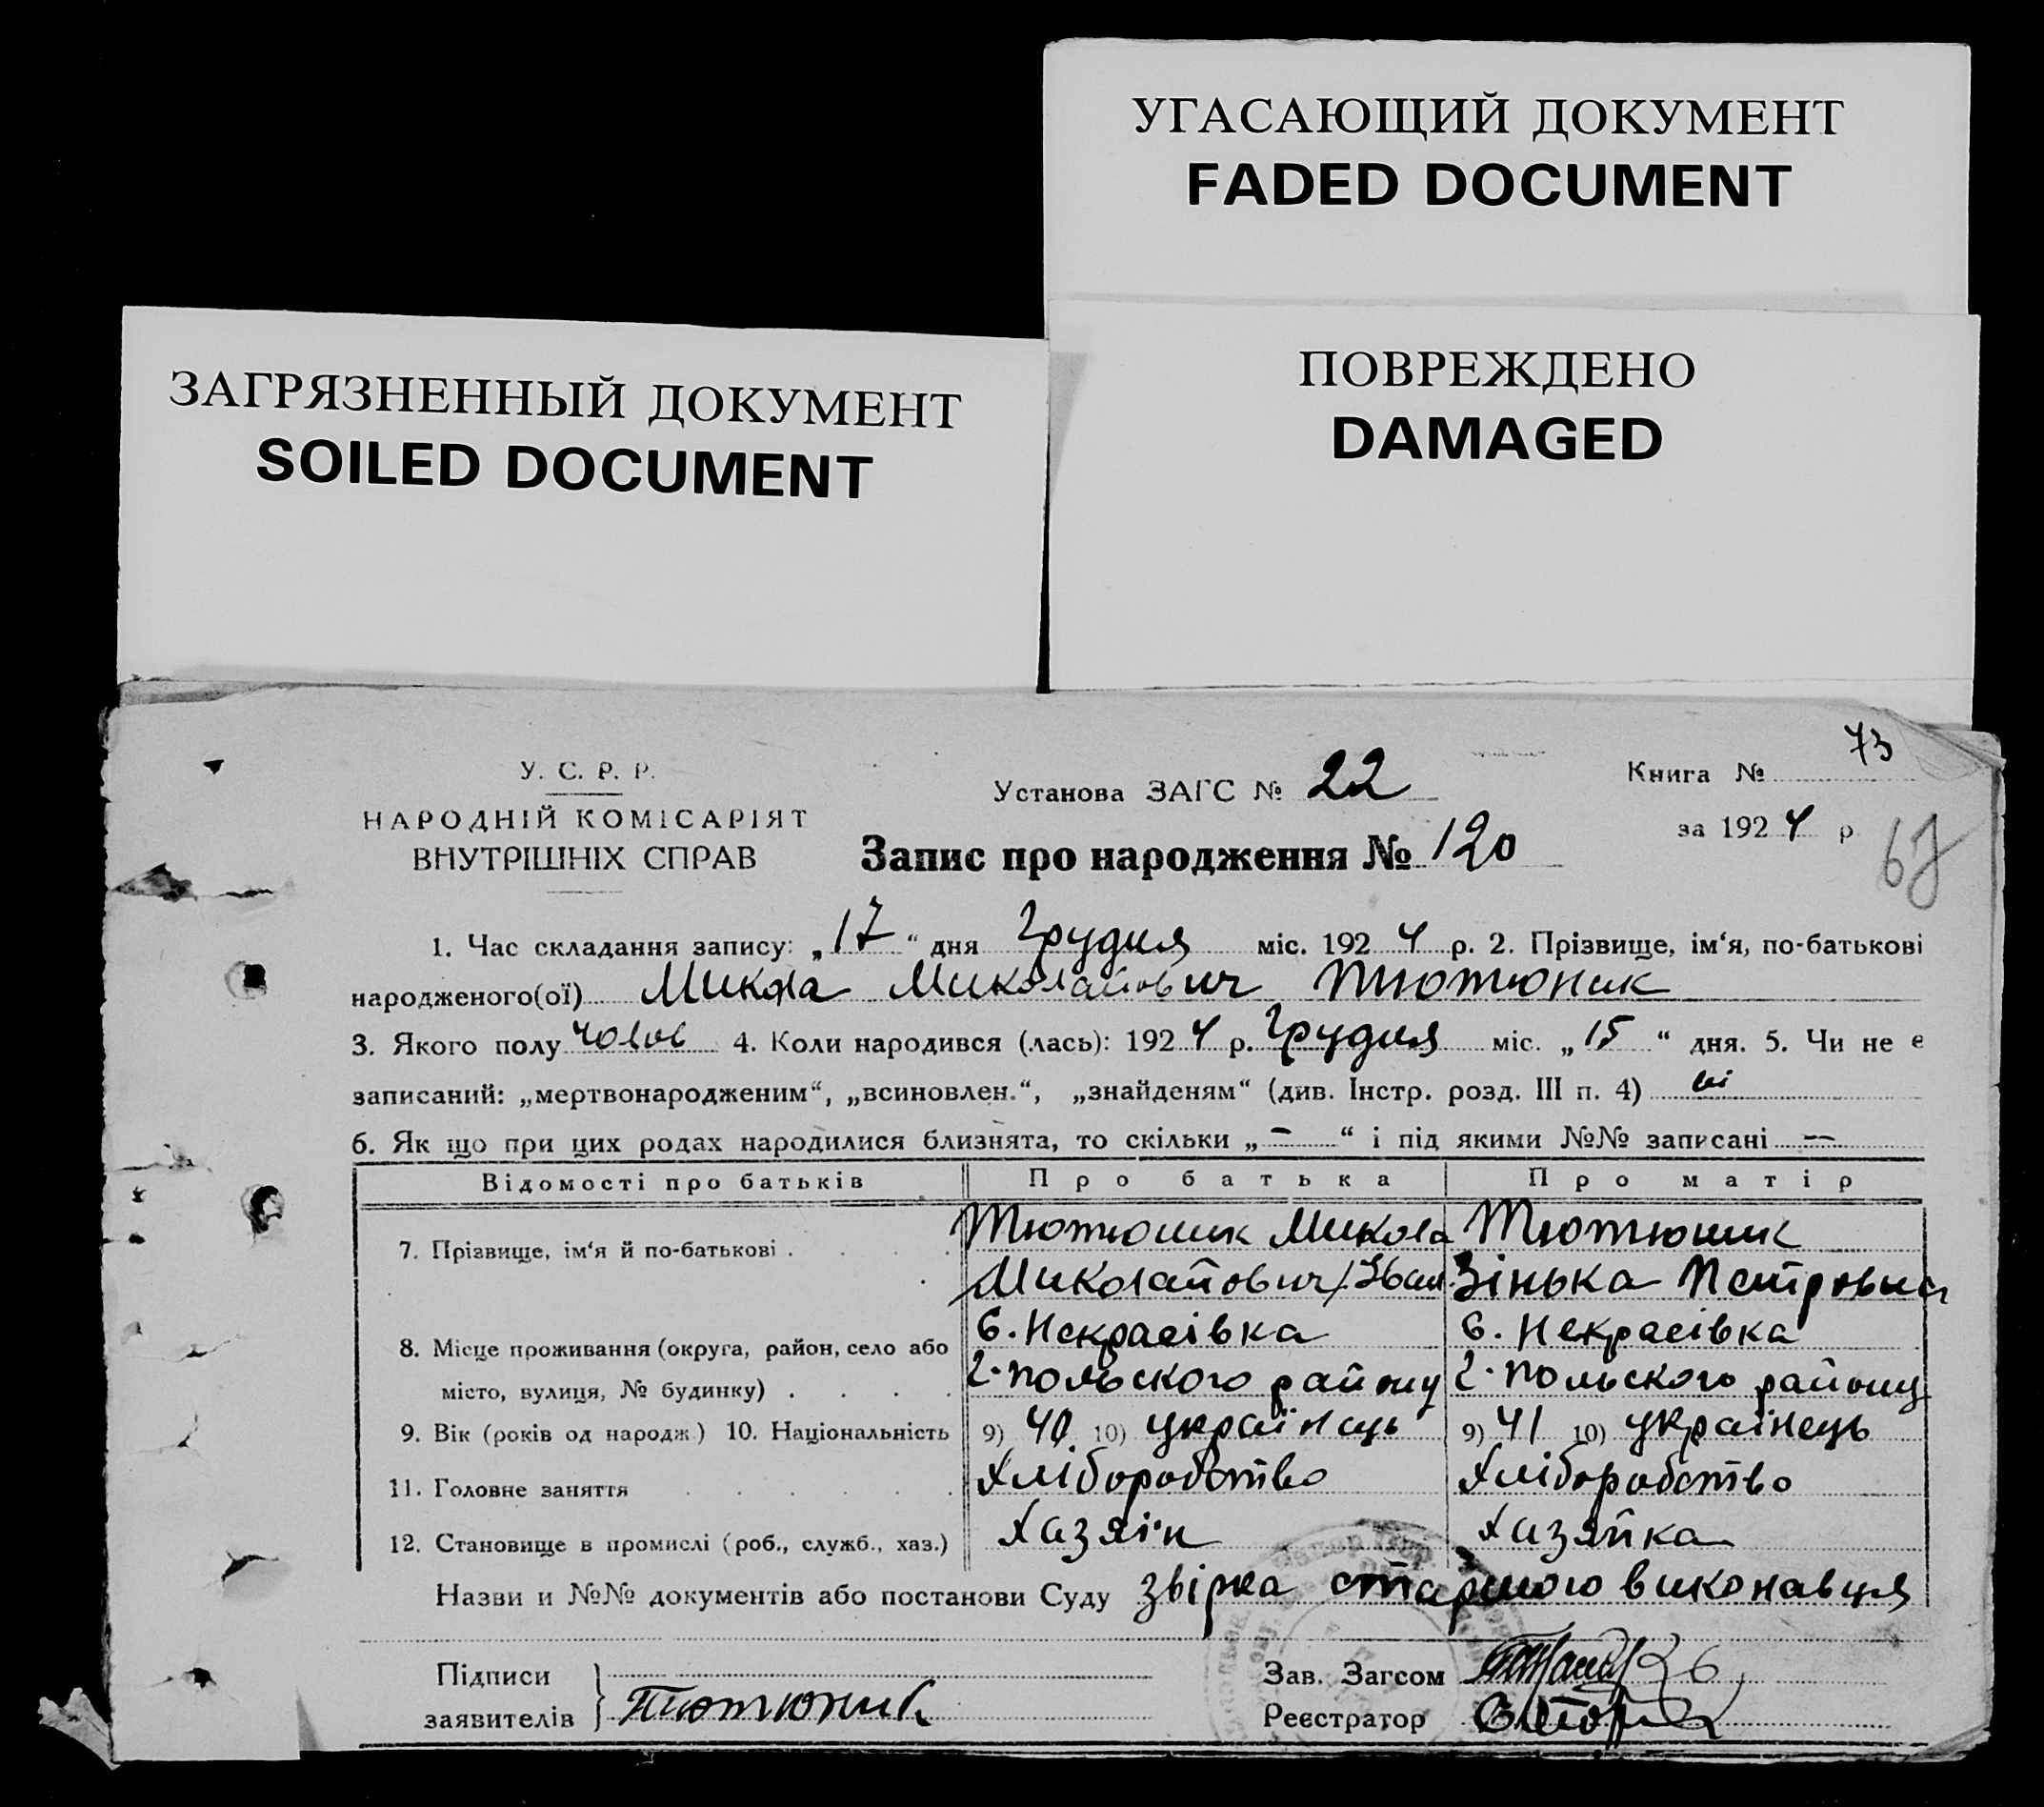 УГАСАЮЩИЙ ДОКУМЕНТ
FADED DOCUMENT
ЗАГРЯЗНЕННЫЙ ДОКУМЕНТ
SOILED DOCUMENT
ПОВРЕЖДЕНО
DAMAGED
73
У. С. Р. Р.
НАРОДНІЙ КОМІСАРІЯТ
ВНУТРІШНІХ СПРАВ
Установа ЗАГС № 22
Книга №
за 1924 р
Запис про народження № 120
1. Час складання запису: „17“ дня Грудня міс. 1924 р. 2. Прізвище, ім‘я, по-батькові
народженого(ої) Микола Миколайович Тютюник
3. Якого полу чолов 4. Коли народився (лась): 1924 р. Грудня міс. „15“ дня. 5. Чи не є
записаний: „мертвонародженим“, „всиновлен.“, „знайденям“ (див. Інстр. розд. III п. 4) ні
6. Як що при цих родах народилися близнята, то скільки „-“ і під якими №№ записані —
Відомості про батьків Про батька Про матір
7. Прізвище, ім‘я й по-батькові . Тютюник Микола Тютюник
Миколайович Зінька Петровна
8. Місце проживання (округа, район, село або с. Некрасівка с. Некрасівка
місто, вулиця, № будинку) . Г-Польского району Г-Польского району
9. Вік (років од народж.) 10. Національність 9) 40 10) українець 9) 41 10) українець
11. Головне заняття Хліборобство Хліборобство
12. Становище в промислі (роб., служб., хаз.) Хазяін Хазяйка
Назви и №№ документів або постанови Суду звірка старшого виконавця
Підписи
заявителів Тютюник
Зав. Загсом
Реєстратор